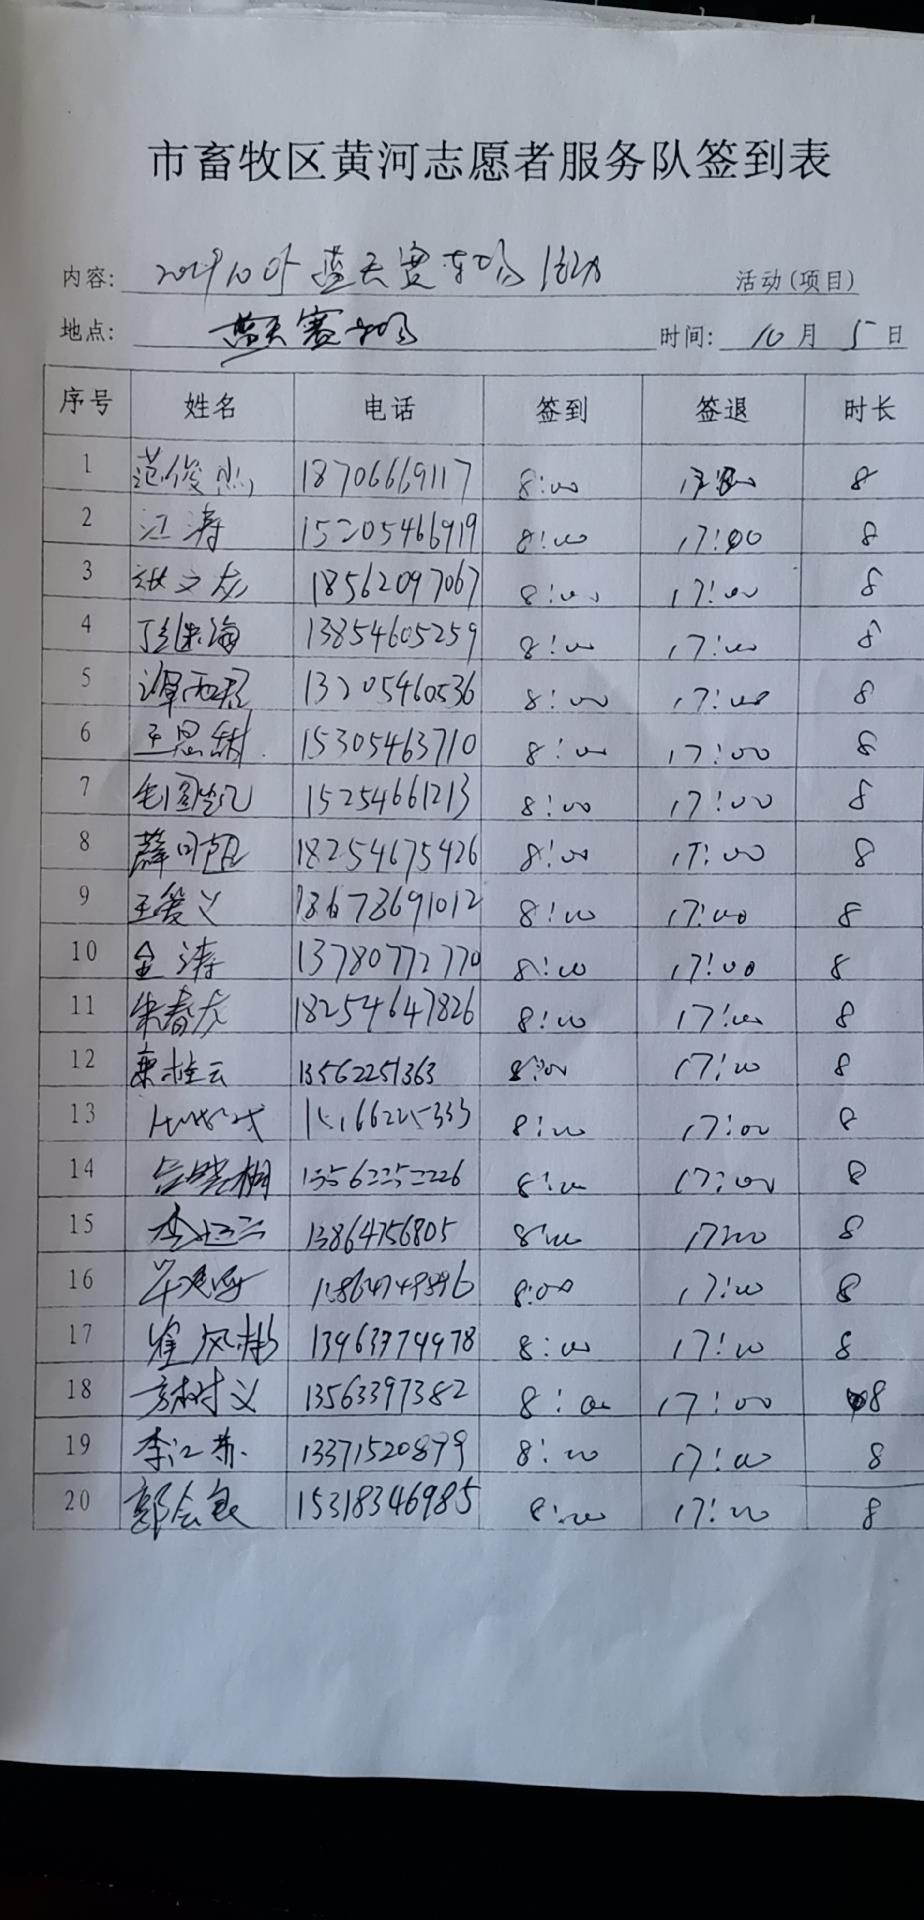 市畜牧区黄河志愿者服务队签到表
内容: 蓝天赛车场活动 活动(项目)
地点: 蓝天赛车场 时间: 10月5日
序号 姓名 电话 签到 签退 时长
1 范俊杰 18706669117 8:00 8
2 江涛 15205466919 8:00 17:00 8
3 张文龙 18562097067 8:00 17:00 8
4 13854605259 8:00 17:00 8
5 谭雨君 13205460536 8:00 17:00 8
6 王恩树 15305463710 8:00 17:00 8
7 15254661213 8:00 17:00 8
8 薛 18254675426 8:00 17:00 8
9 王爱义 18678691012 8:00 17:00 8
10 金涛 13780772770 8:00 17:00 8
11 朱春友 18254647826 8:00 17:00 8
12 桂云 13562251363 8:00 17:00 8
13 8:00 17:00 8
14 8:00 17:00 8
15 李 13864756805 8:00 17:00 8
16 8:00 17:00 8
17 崔风 13463774978 8:00 17:00 8
18 方树义 13563397382 8:00 17:00 8
19 李江苏 13371520879 8:00 17:00 8
20 郭会良 15318346985 8:00 17:00 8